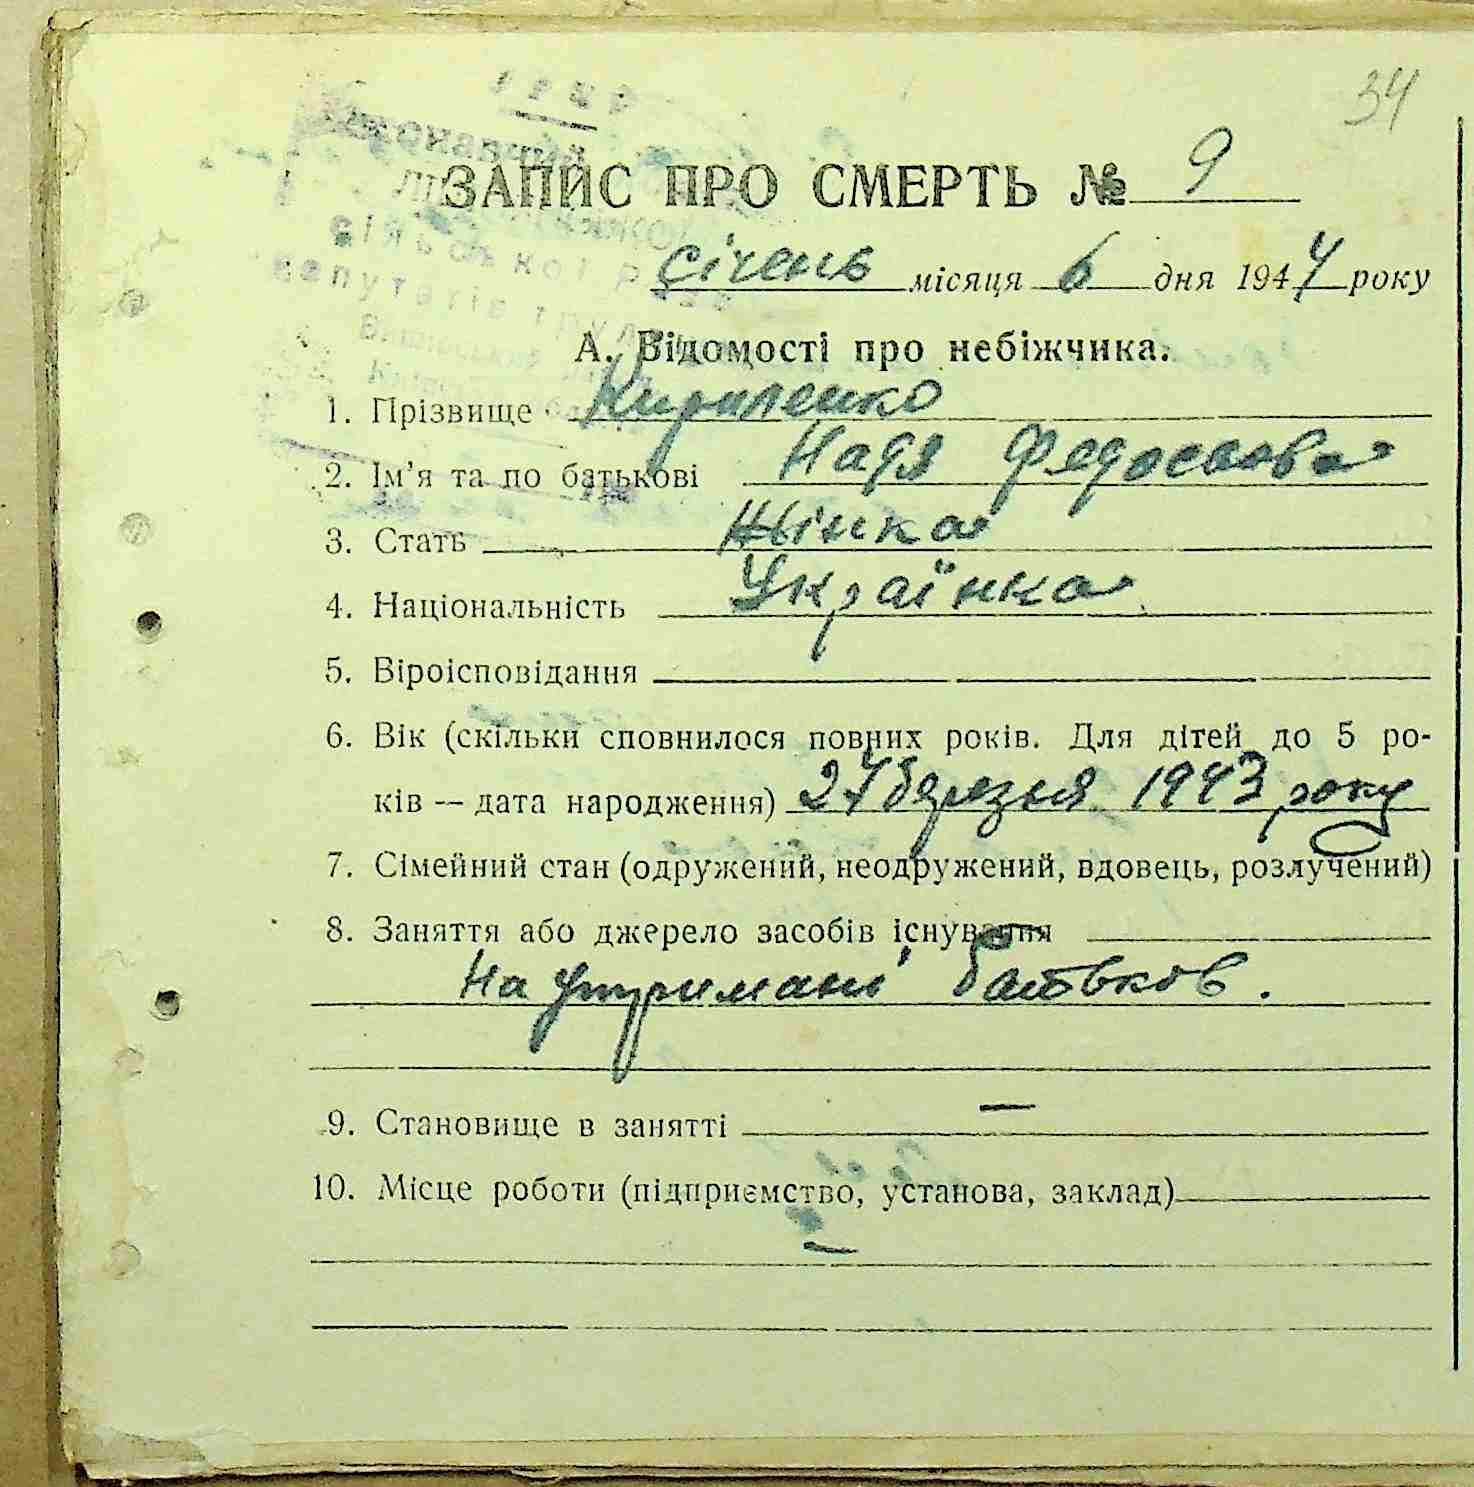 34
УРСР
Виконавчий
сільської ради
депутатів труд
ЗАПИС ПРО СМЕРТЬ № 9
січень місяця 6 дня 1944 року
А. Відомості про небіжчика.
1. Прізвище Кириленко
2. Ім’я та по батькові Надя
3. Стать жінка
4. Національність Українка
5. Віроісповідання
6. Вік (скільки сповнилося повних років. Для дітей до 5 ро-
ків — дата народження) 27 березня 1943 року
7. Сімейний стан (одружений, неодружений, вдовець, розлучений)
8. Заняття або джерело засобів існування
На утримані батьков.
9. Становище в занятті —
10. Місце роботи (підприємство, установа, заклад)
—